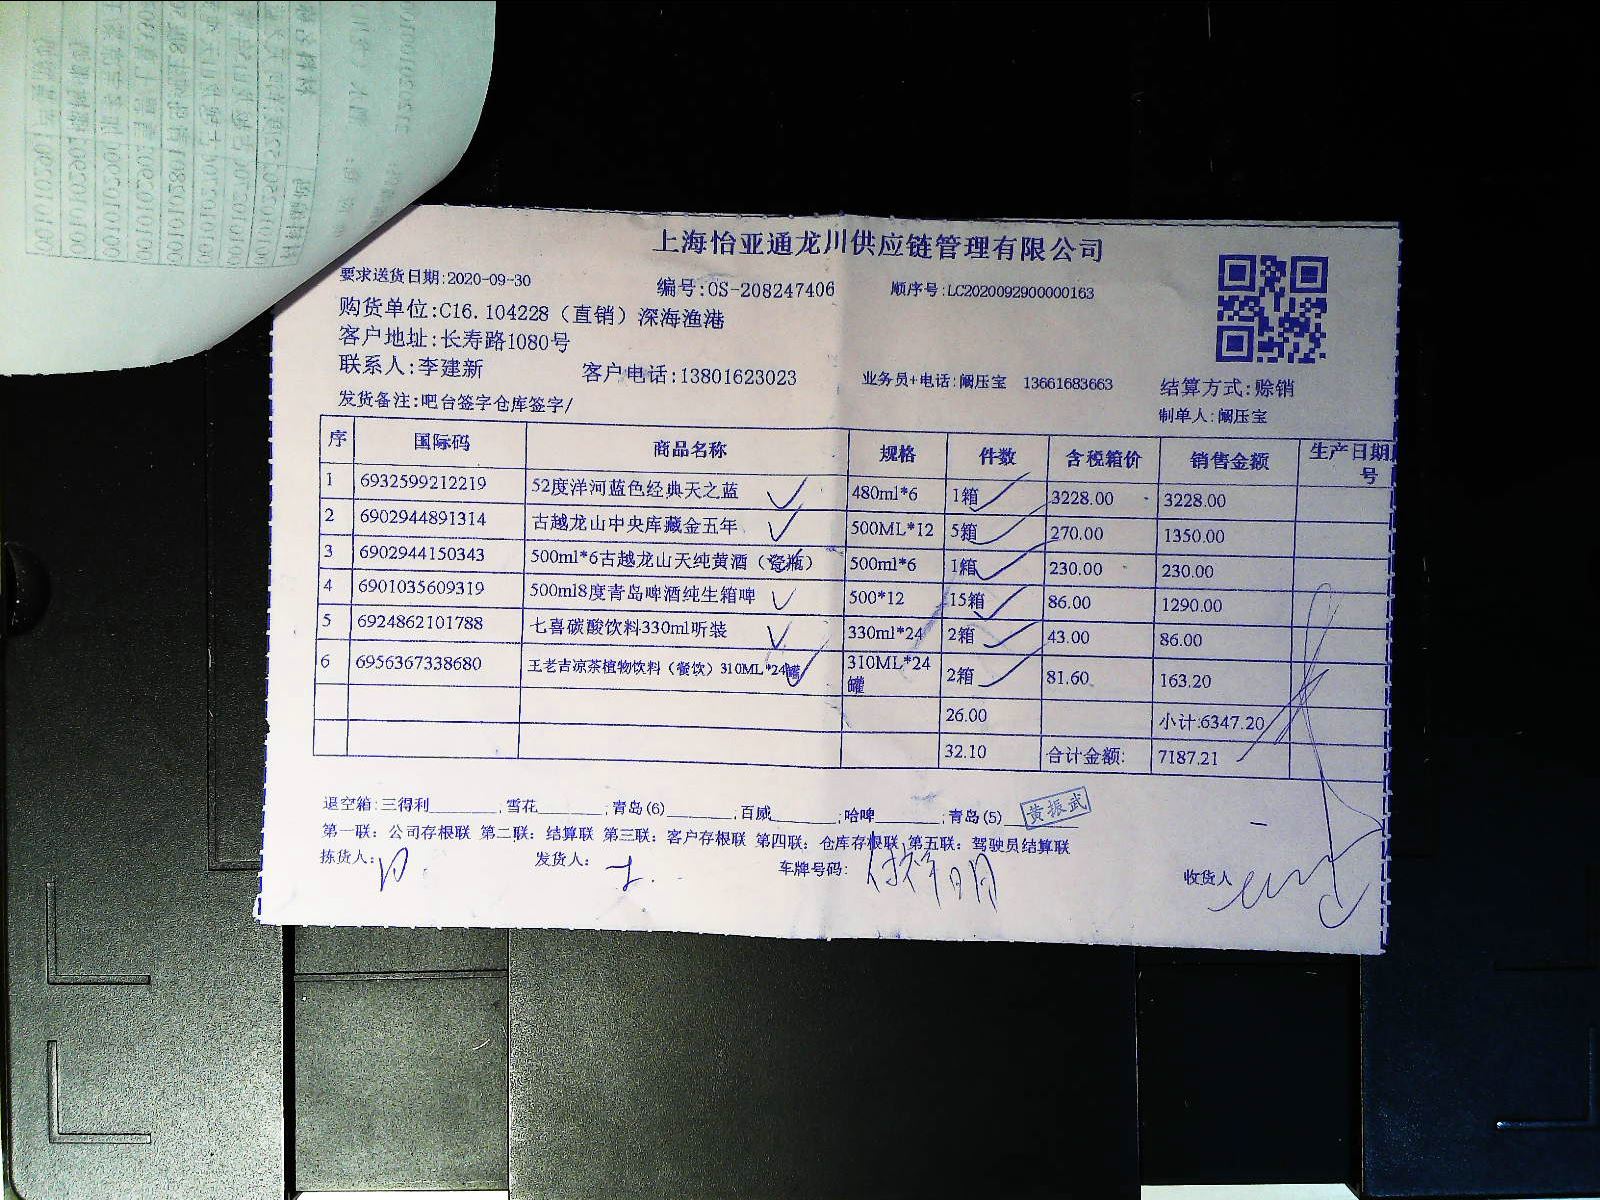 上海怡亚通龙川供应链管理有限公司
要求送货日期:2020-09-30 编号:OS-208247406 顺序号:LC2020092900000163
购货单位:C16.104228（直销）深海渔港
客户地址:长寿路1080号
联系人:李建新 客户电话:13801623023 业务员+电话:阚压宝 13661683663 结算方式:赊销
发货备注:吧台签字仓库签字/ 制单人:阚压宝
序 国际码 商品名称 规格 件数 含税箱价 销售金额 生产日期
号
1 6932599212219 52度洋河蓝色经典天之蓝 480ml*6 1箱 3228.00 3228.00
2 6902944891314 古越龙山中央库藏金五年 500ML*12 5箱 270.00 1350.00
3 6902944150343 500ml*6古越龙山天纯黄酒（瓷瓶） 500ml*6 1箱 230.00 230.00
4 6901035609319 500ml8度青岛啤酒纯生箱啤 500*12 15箱 86.00 1290.00
5 6924862101788 七喜碳酸饮料330ml听装 330ml*24 2箱 43.00 86.00
6 6956367338680 王老吉凉茶植物饮料（餐饮）310ML*24罐 310ML*24罐 2箱 81.60 163.20
26.00 小计:6347.20
32.10 合计金额: 7187.21
退空箱:三得利________;雪花________;青岛(6)________;百威________;哈啤________;青岛(5)________
黄振武
第一联：公司存根联 第二联：结算联 第三联：客户存根联 第四联：仓库存根联 第五联：驾驶员结算联
拣货人: 发货人: 车牌号码: 收货人